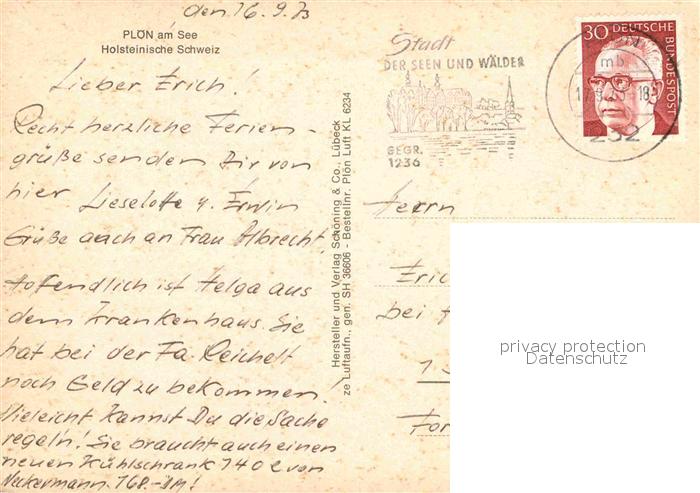 den 16.9.73
PLÖN am See
Holsteinische Schweiz
Lieber Erich!
Recht herzliche Ferien-
grüße senden Dir von
hier Lieselotte u. Erwin
Grüße auch an Frau Albrecht!
Hoffendlich ist Helga aus
dem Krankenhaus. Sie
hat bei der Fa. Reichelt
noch Geld zu bekommen!
Vieleicht kannst Du die Sache
regeln! Sie braucht auch einen
neuen Kühlschrank 140 l von
Neckermann 168.-DM!
Hersteller und Verlag Schöning & Co., Lübeck
ze Luftaufn., gen. SH 36606 - Bestellnr. Plön Luft KL 6234
Stadt
DER SEEN UND WÄLDER
GEGR.
1236
30 DEUTSCHE
BUNDESPOST
mb
18
232
Herrn
Eric
bei
privacy protection
Datenschutz